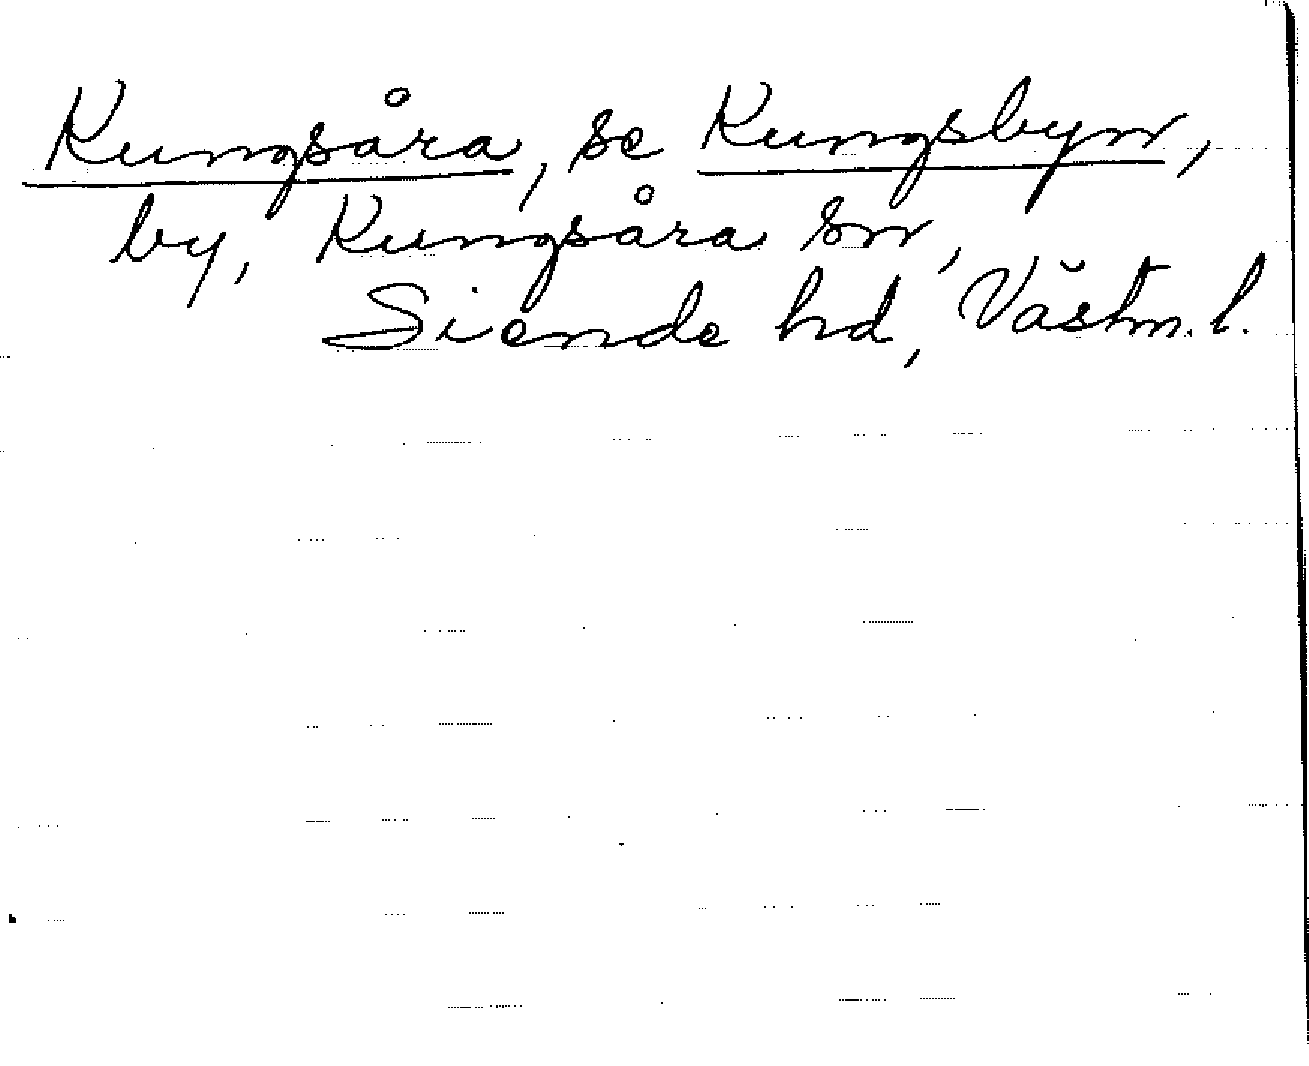 Kungsåra, se Kungsbyn,
by, Kungsåra sn,
Siende hd, Västm. l.